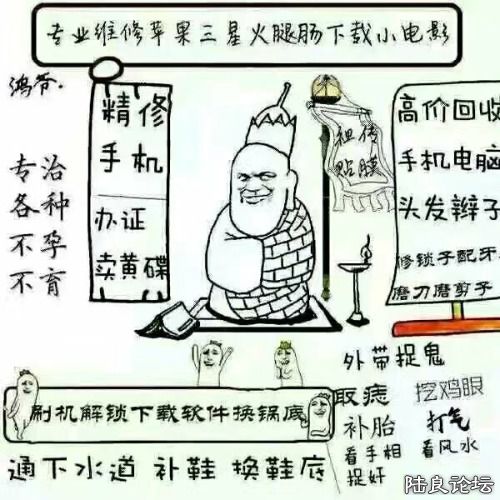 专业维修苹果三星火腿肠下载小电影
鸿爷.
精修
手机
办证
卖黄碟
专治
各种
不孕
不育
祖传
贴膜
高价回收
手机电脑
头发辫子
修锁子配牙
磨刀磨剪子
外带捉鬼
取痣
挖鸡眼
补胎
打气
看手相
看风水
捉奸
刷机解锁下载软件换锅底
通下水道 补鞋 换鞋底
陆良论坛